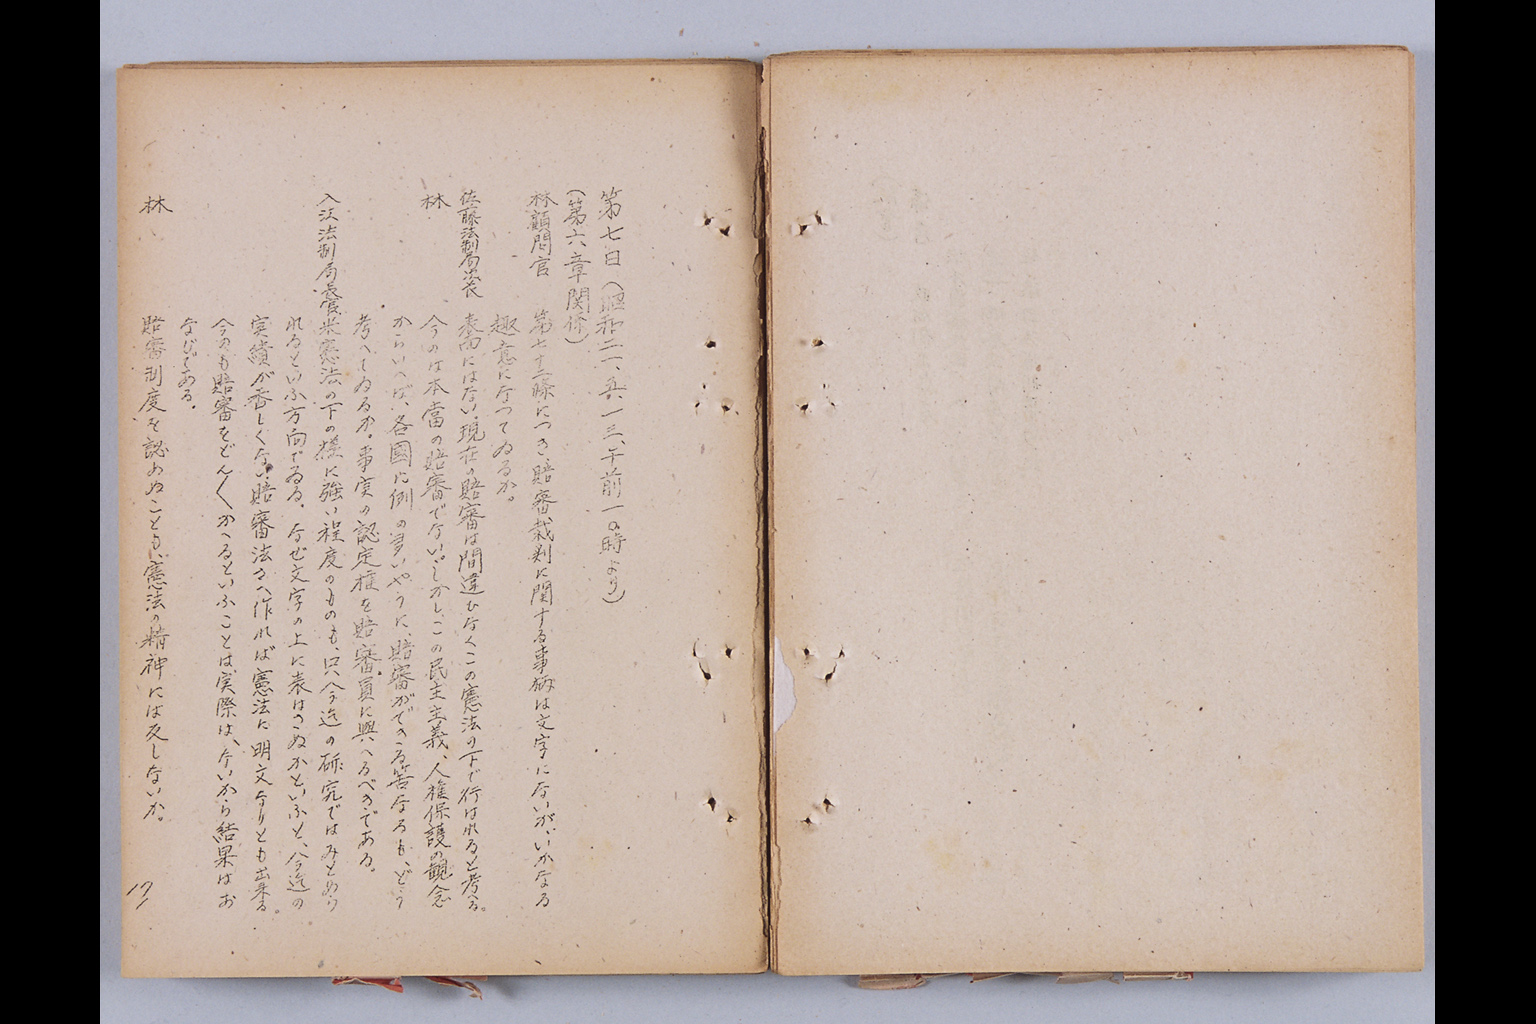 第七日(昭和二一、五、一三、午前一〇時より)
(第六章関係)
林顧問官 第七十三條につき、賠審裁判に関する事柄は文字にないが、いかなる
趣意になつてゐるか。
佐藤法制局次長 表面にはない。現在の賠審は間違ひなくこの憲法の下で行はれると考へる。
林 今のは本当の賠審でない。しかしこの民主主義、人権保護の観念
からいへば、各國に例の多いやうに、賠審ができる筈なるも、どう
考へてゐるか。事実の認定権を賠審員に與へるべきである。
入江法制局長官 米憲法の下の様に強い程度のものも、只今迄の研究ではみとめら
れるといふ方向でゐる。なぜ文字の上に表はさぬかといふと、今迄の
実績が香しくない。賠審法さへ作れば憲法に明文なりとも出来る。
今のも賠審をどん〱かへるといふことは実際は、ないから結果はお
なじである。
林 賠審制度を認めぬことも、憲法の精神には反しないか。
171